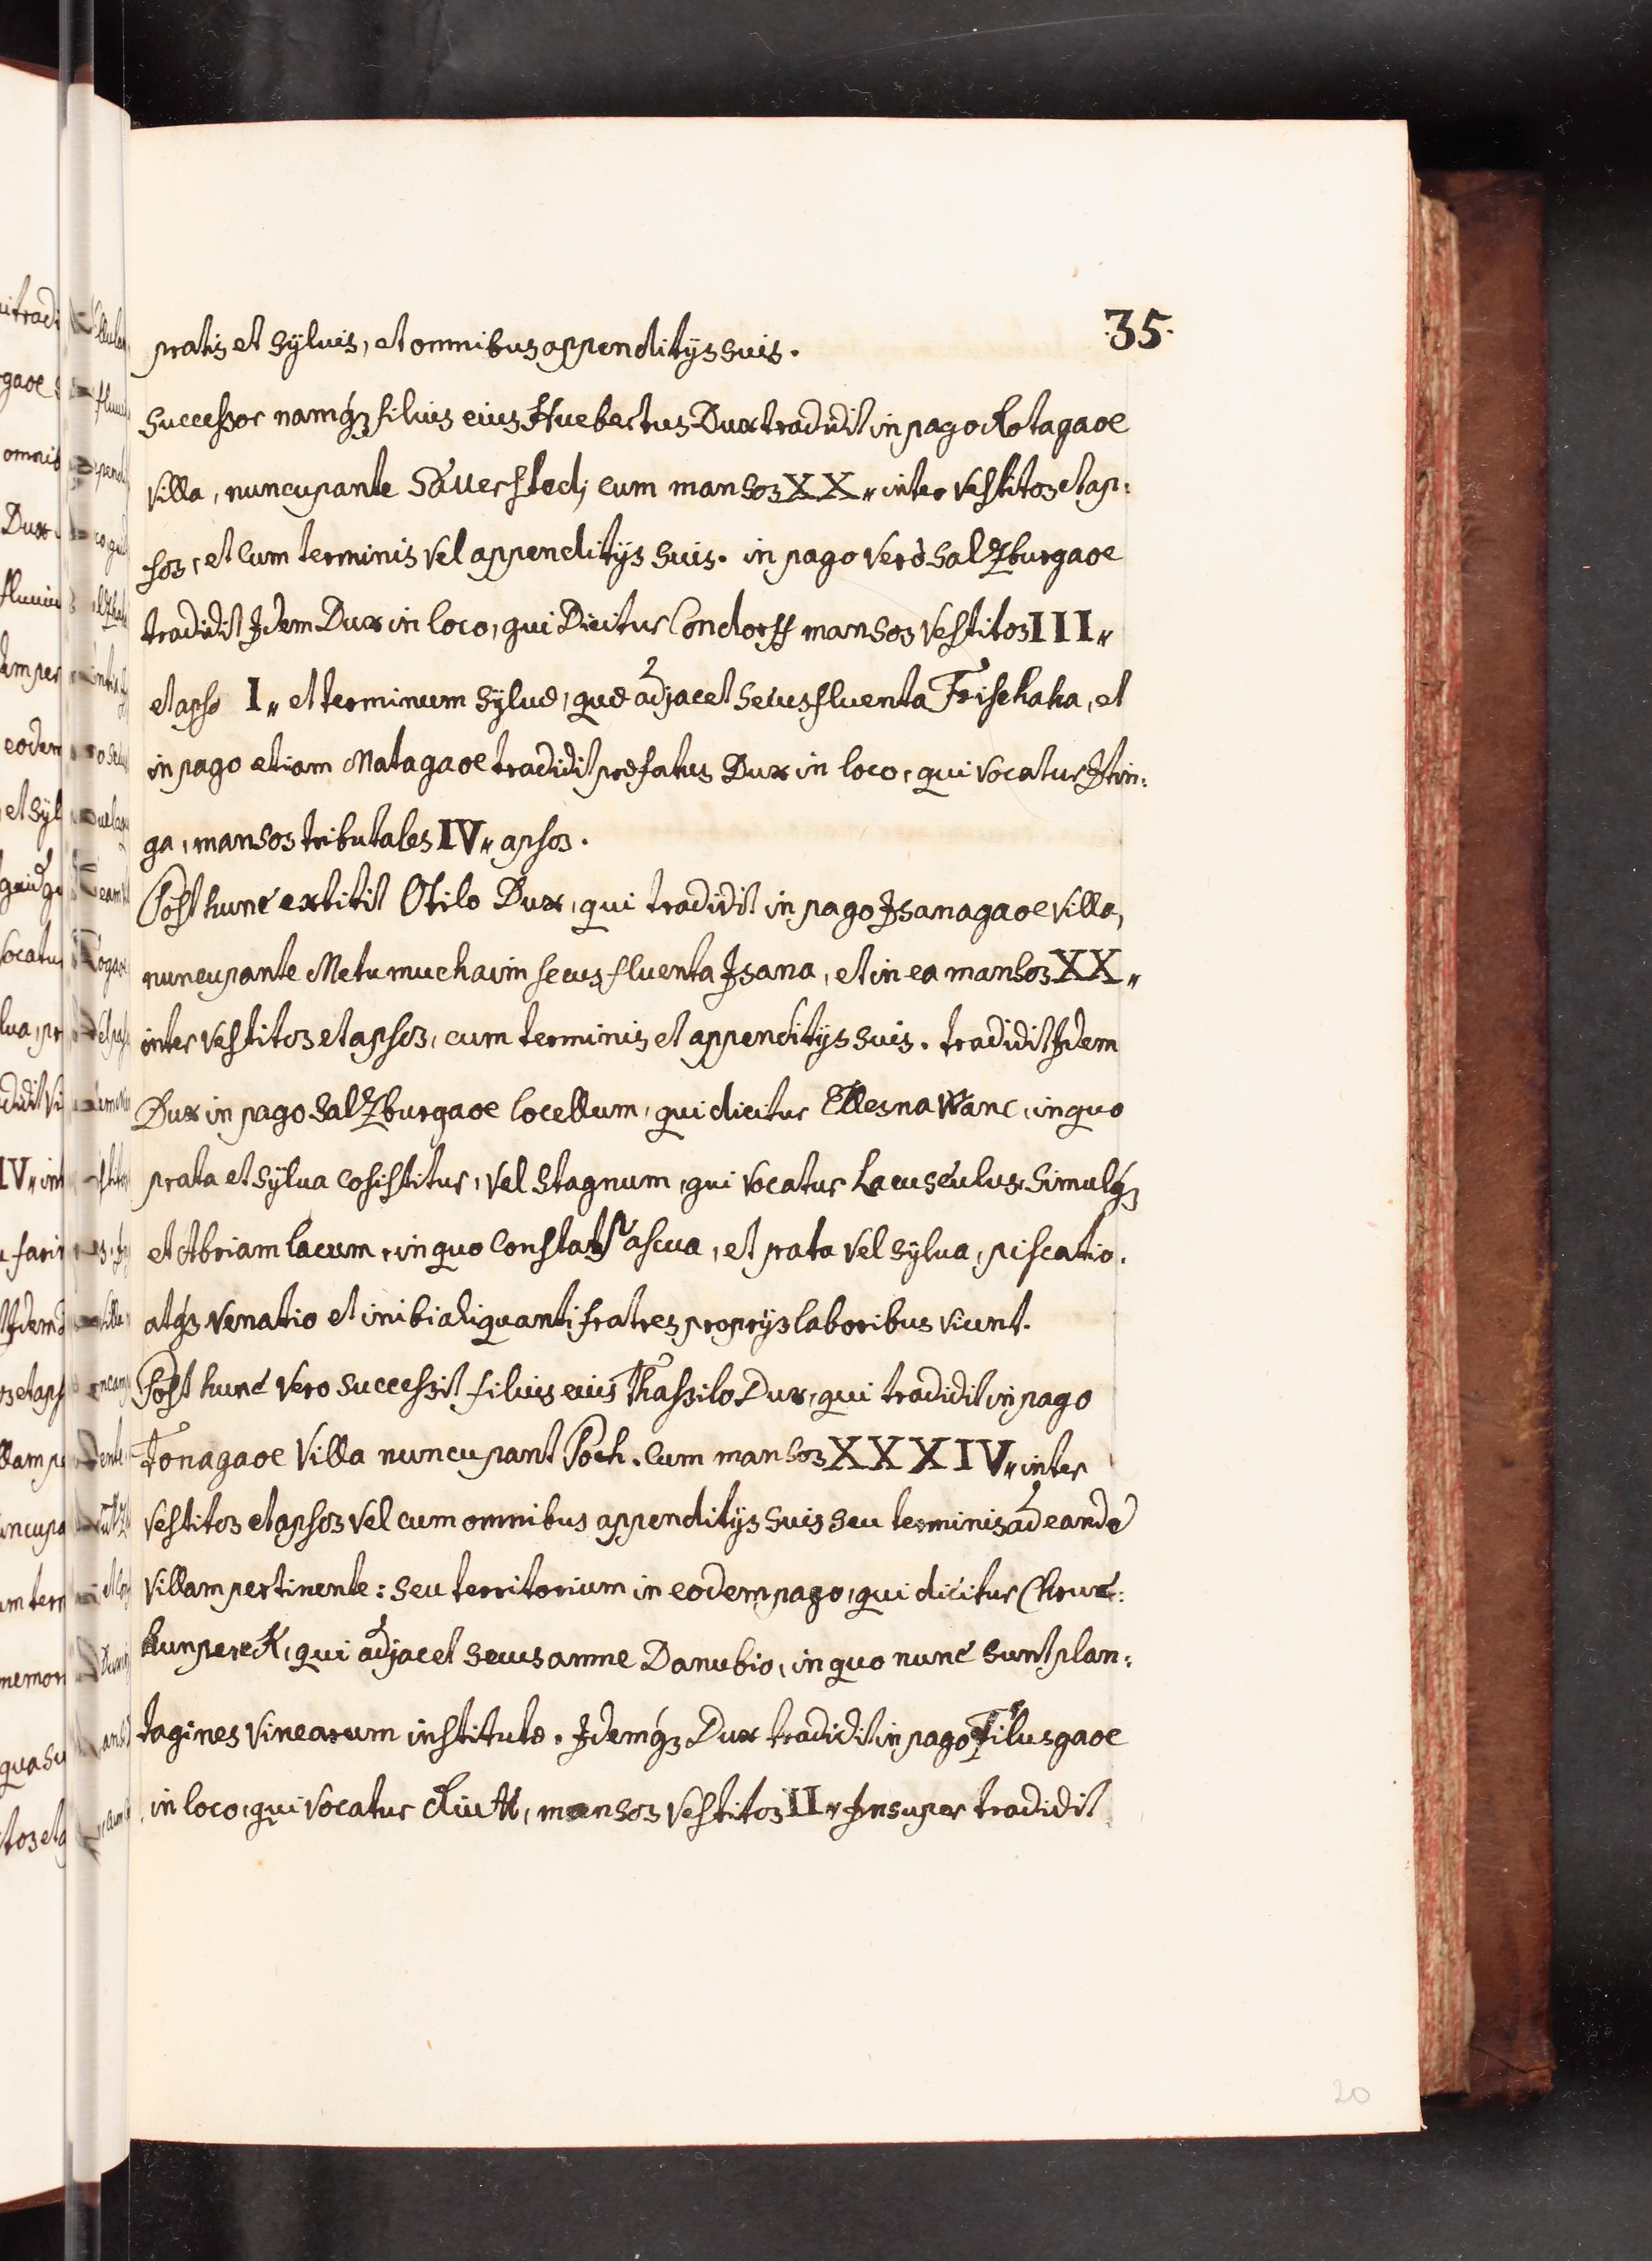 35.
pratis et Sÿluis, et omnibus appenditijs suis.
Successor namq3 filius eius Huebertus Dux tradidit in pago Rotagaoe
Villa, nuncupante Säuerstedj cum mansos XX„ inter Vestitos et ap:
sos, et cum terminis Vel appenditijs suis. in pago Verò Saltzburgaoe
tradidit Idem Dux in loco, qui Dicitur Condorff mansos Vestitos III„
et apso I„ et terminum Sÿluæ, quæ adjacet Secus fluenta Frischaha, et
in pago etiam Matagaoe tradidit præfatus Dux in loco, qui Vocatur Itin:
ga, mansos tributales IV„ apsos.
Post hunc extitit Otilo Dux, qui tradidit in pago Isanagaoe Villa,
nuncupante Metumuchaim secus fluenta Isana, et in ea mansos XX„
inter Vestitos et apsos, cum terminis et appenditijs suis. tradidit Idem
Dux in pago Saltzburgaoe locellum, qui dicitur Ellesna Wanc, in quo
prata et Sÿlua cosistitur, Vel Stagnum, qui Vocatur Lacusculus, Simulq3
et Abriam lacum, in quo Constat Pascua, et prata Vel Sÿlua, piscatio.
atq3 Venatio et inibi aliquanti fratres proprijs laboribus Viunt.
Post hunc Vero Successit filius eius Thassilo Dux, qui tradidit in pago
Tonagaoe Villa nuncupant Poch. Cum mansos XXXIV„ inter
Vestitos et apsos Vel cum omnibus appenditijs Suis Seu terminis ad eandē
Villam pertinente: Seu territorium in eodem pago, qui dicitur Chruc:
kunpereK, qui adjacet Secus amne Danubio, in quo nunc Sunt plan:
tagines Vinearum institutæ. Idemq3 Dux tradidit in pago Filusgaoe
in loco, qui Vocatur Riutt, mansos Vestitos II„ Insuper tradidit
20